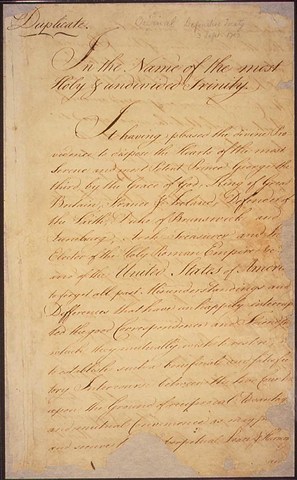 Duplicate.
Definitive Treaty
3 Sept. 1783
In the Name of the most
Holy & undivided Trinity.
It having pleased the divine Pro
vidence to dispose the Hearts of the most
Serene and most Potent Prince George the
third, by the Grace of God, King of Great
Britain, France & Ireland, Defender of
the Faith, Duke of Brunswick and
Lunebourg, Arch Treasurer, and
Elector of the Holy Roman Empire &c
and of the United States of America
to forget all past Misunderstandings and
Differences that have unhappily interrup
ted the good Correspondence and Friendship
which they mutually wish to restore; and
to establish such a beneficial and satisfac
tory Intercourse between the two Countries
upon the Ground of reciprocal Advantages
and mutual Convenience as may
and secure perpetual Peace & Harmony